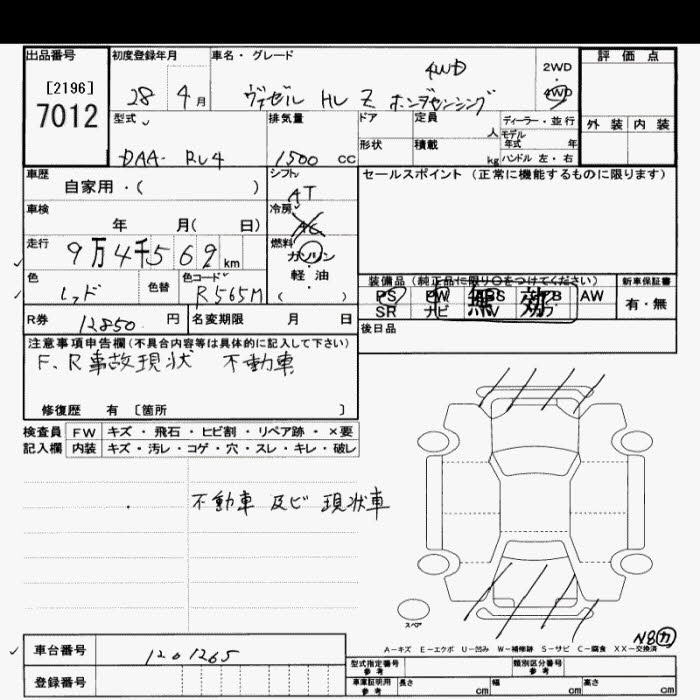 出品番号 初度登録年月 車名・グレード 評価点
[2196] 4WD 2WD
7012 28 4月 ヴェゼル HV Z ホンダセンシング 4WD
型式 排気量 ドア 定員 人 ディーラー・並行 外装 内装
モデル年式 年
DAA- RU4 1500 cc 形状 積載 kg ハンドル 左・右
車歴 シフト セールスポイント (正常に機能するものに限ります)
自家用・( ) AT
車検 冷房
年 月( 日) AC
走行 燃料
9万4千569km ガソリン
軽油
色 色替 色コード 装備品 (純正品に限り○をつけてください) 新車保証書
レッド R565M ( ) PS PW 無効 AW 有・無
SR ナビ
R券 12850円 名変期限 月 日 後日品
注意事項申告欄(不具合内容等は具体的に記入して下さい)
F、R事故現状 不動車
修復歴 有 [箇所 ]
検査員 FW キズ・飛石・ヒビ割・リペア跡・×要
記入欄 内装 キズ・汚レ・コゲ・穴・スレ・キレ・破レ
不動車 及ビ 現状車
スペア
N8カ
A-キズ E-エクボ U-凹み W-補修跡 S-サビ C-腐食 XX-交換済
車台番号 1201265
型式指定番号 参考 類別区分番号 参考
登録番号 車庫証明用 参考 長さ cm 幅 cm 高さ cm